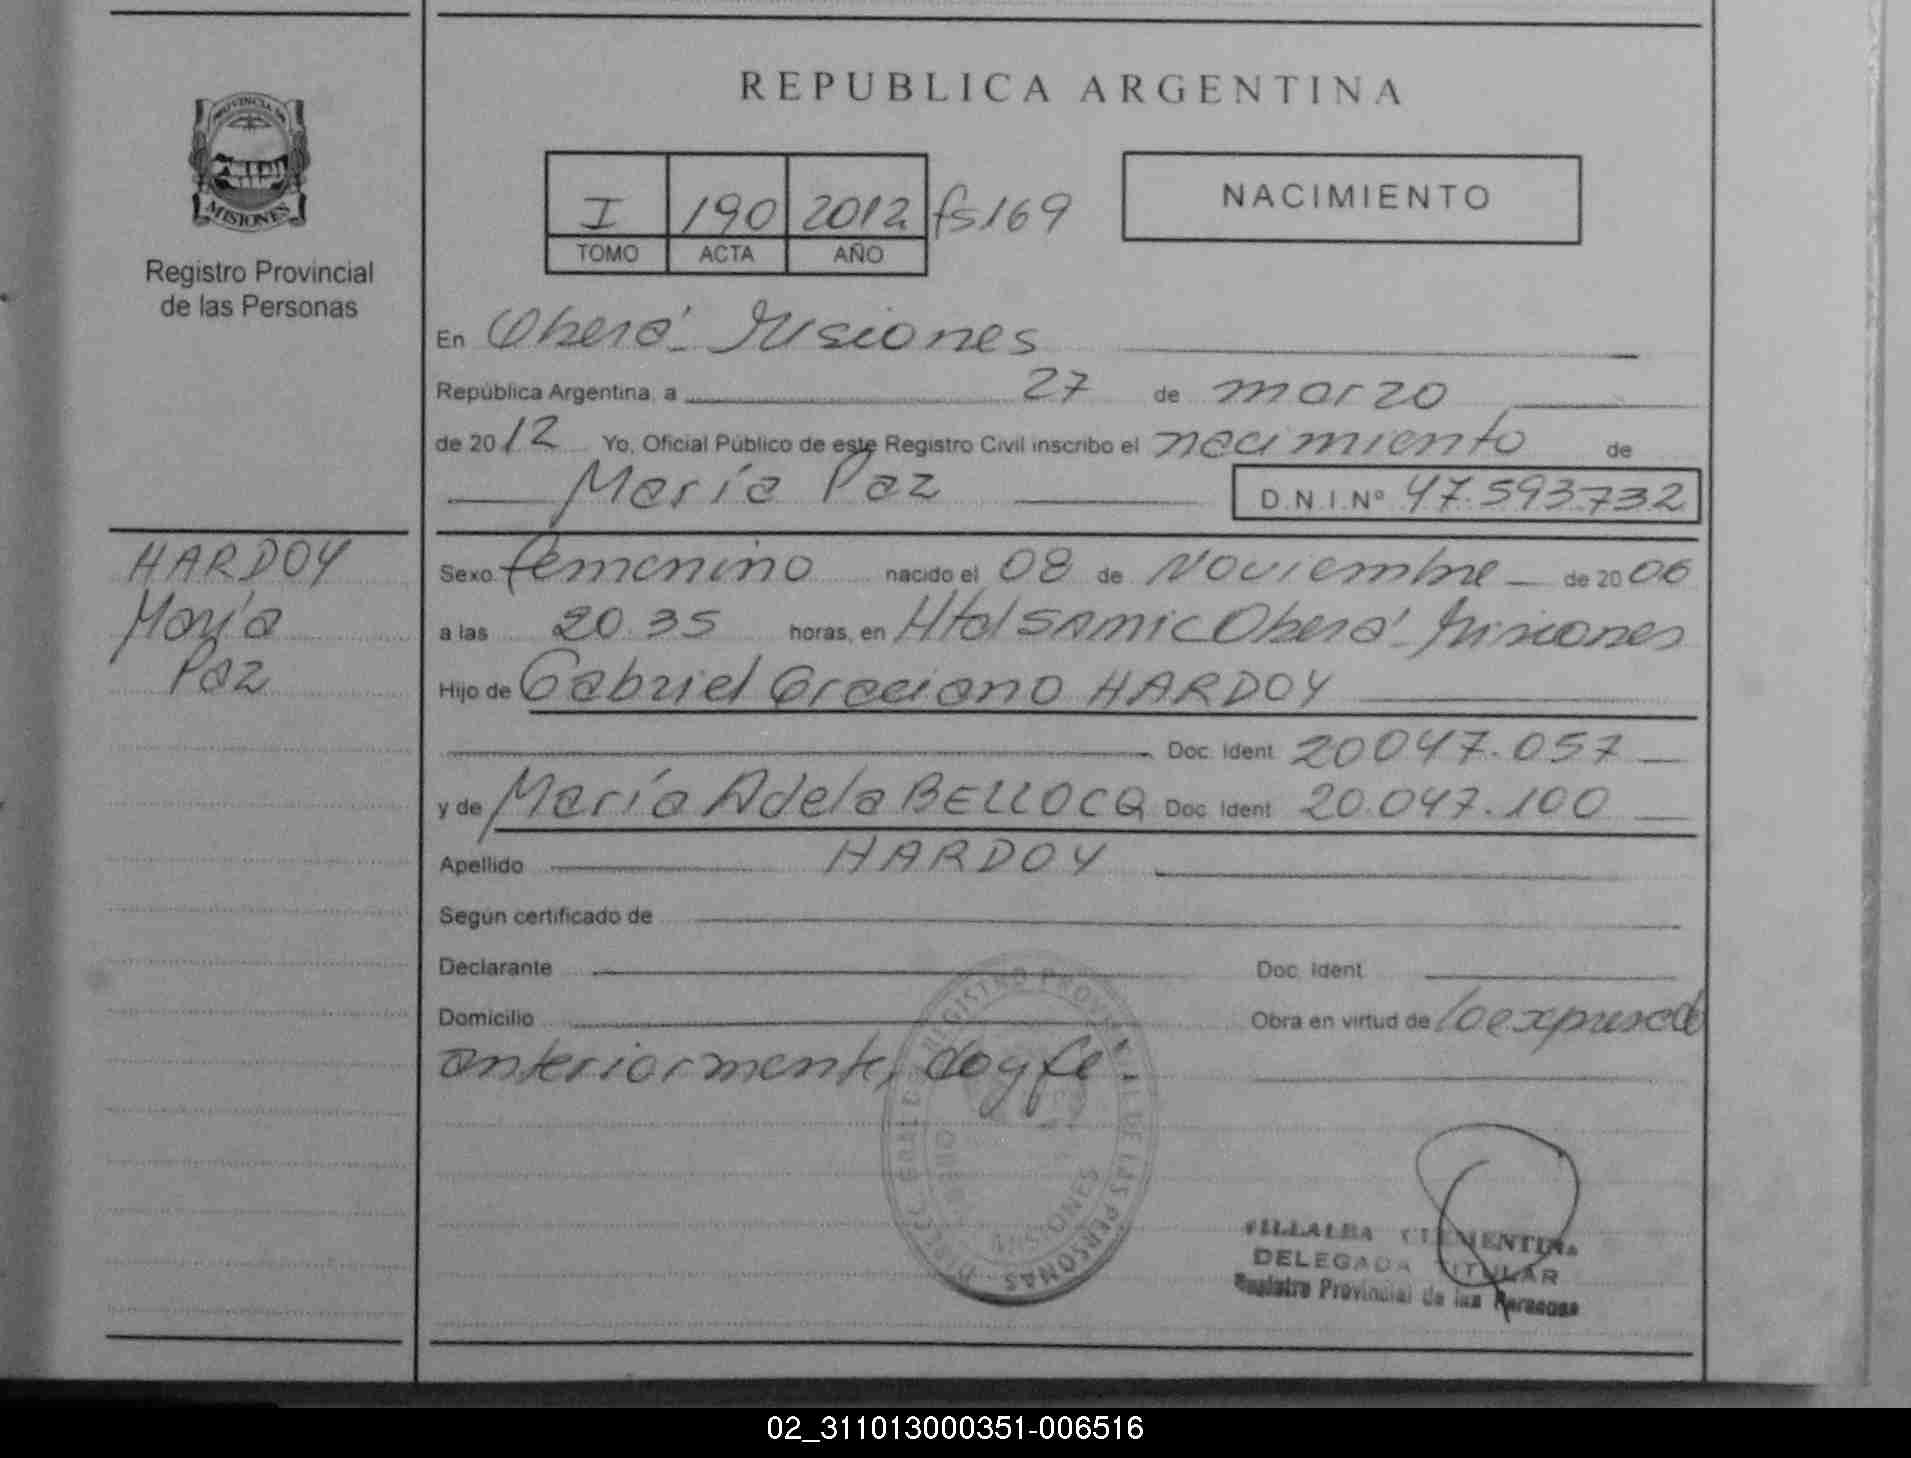 REPUBLICA ARGENTINA
PROVINCIA DE
MISIONES
Registro Provincial
de las Personas
I 190 2012 fs 169
TOMO ACTA AÑO
NACIMIENTO
En Oberá - Misiones
República Argentina, a 27 de marzo
de 2012 Yo, Oficial Público de este Registro Civil inscribo el nacimiento de
María Paz D.N.I.Nº 47.593.732
HARDOY
María
Paz
Sexo femenino nacido el 08 de Noviembre de 2006
a las 20.35 horas, en Htal SAMIC Oberá - Misiones
Hijo de Gabriel Graciano HARDOY
Doc. Ident 20047.057
y de María Adela BELLOCQ Doc. Ident 20.047.100
Apellido HARDOY
Según certificado de
Declarante Doc. Ident
Domicilio Obra en virtud de lo expresado
anteriormente, doy fé.
REGISTRO PROVINCIAL DE LAS PERSONAS
MISIONES
VILLALBA CLEMENTINA
DELEGADA TITULAR
Registro Provincial de las Personas
02_311013000351-006516